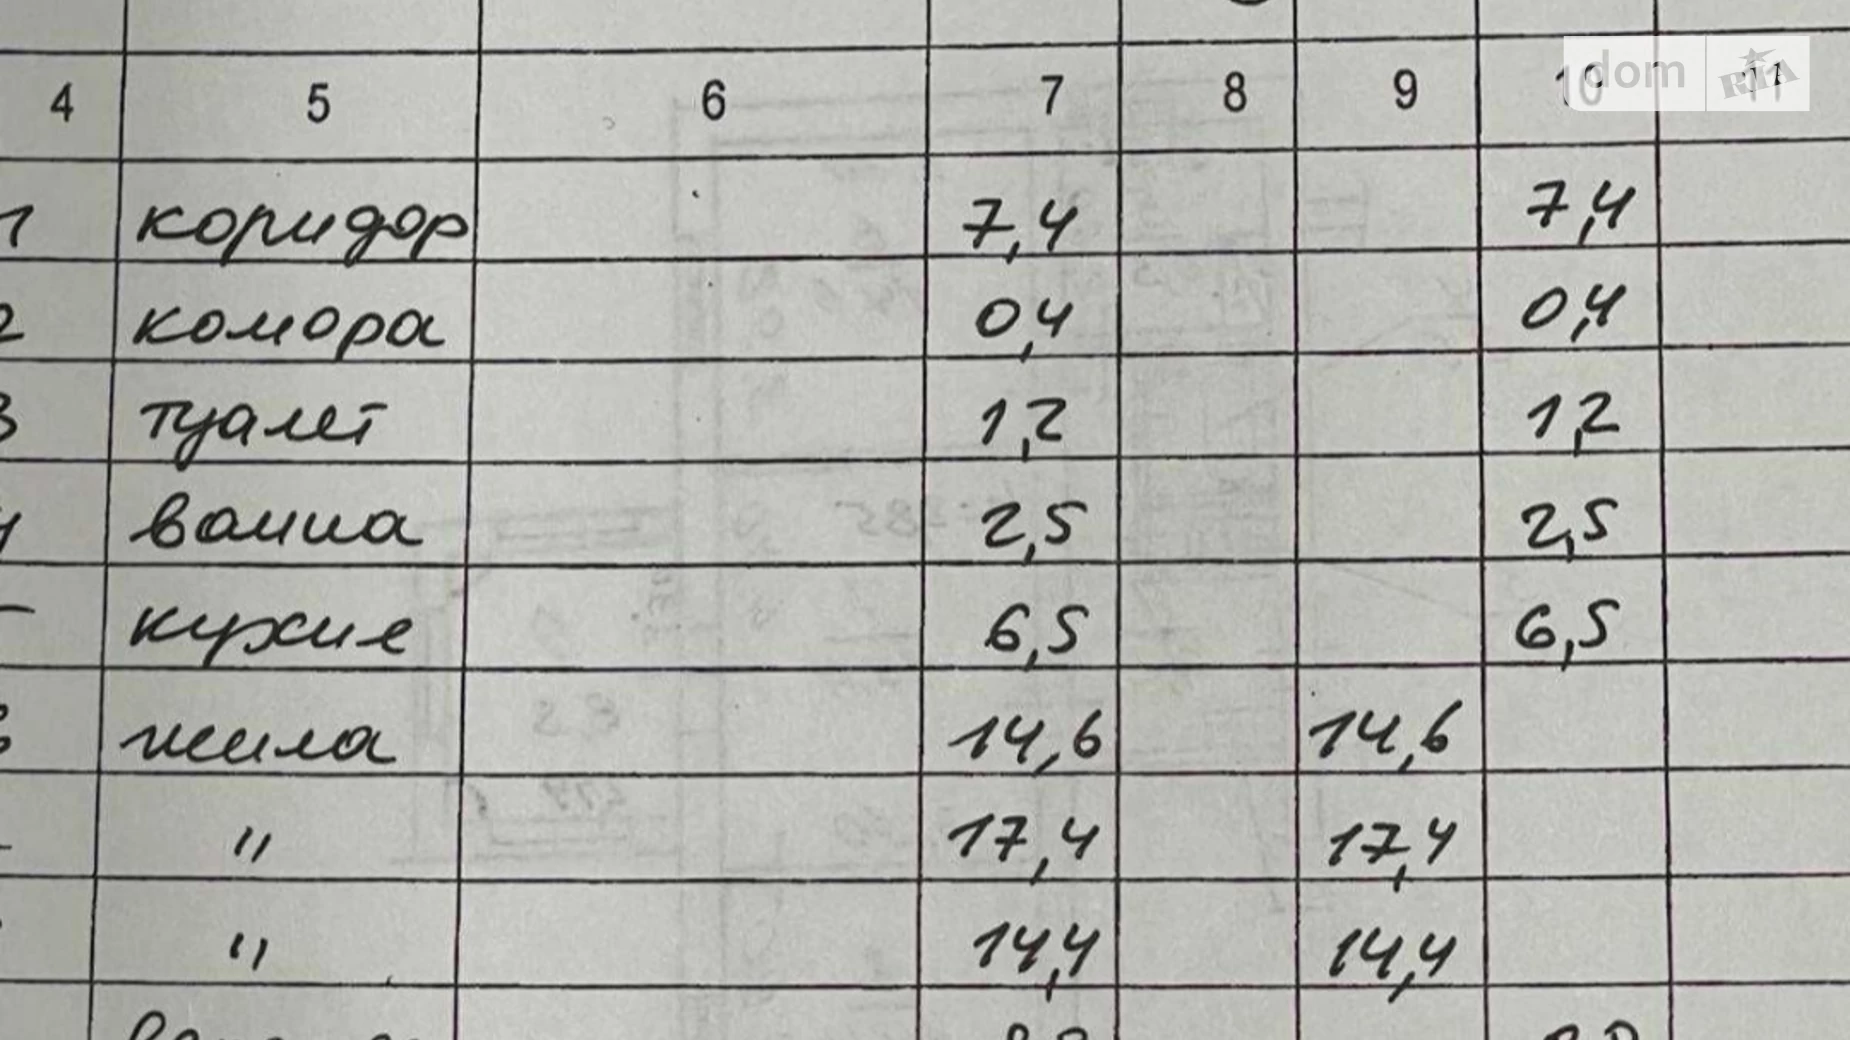 4 5 6 7 8 9 10 11
dom RIA
1 коридор 7,4 7,4
2 комора 0,4 0,4
3 туалет 1,2 1,2
4 ванна 2,5 2,5
кухне 6,5 6,5
жила 14,6 14,6
" 17,4 17,4
" 14,4 14,4